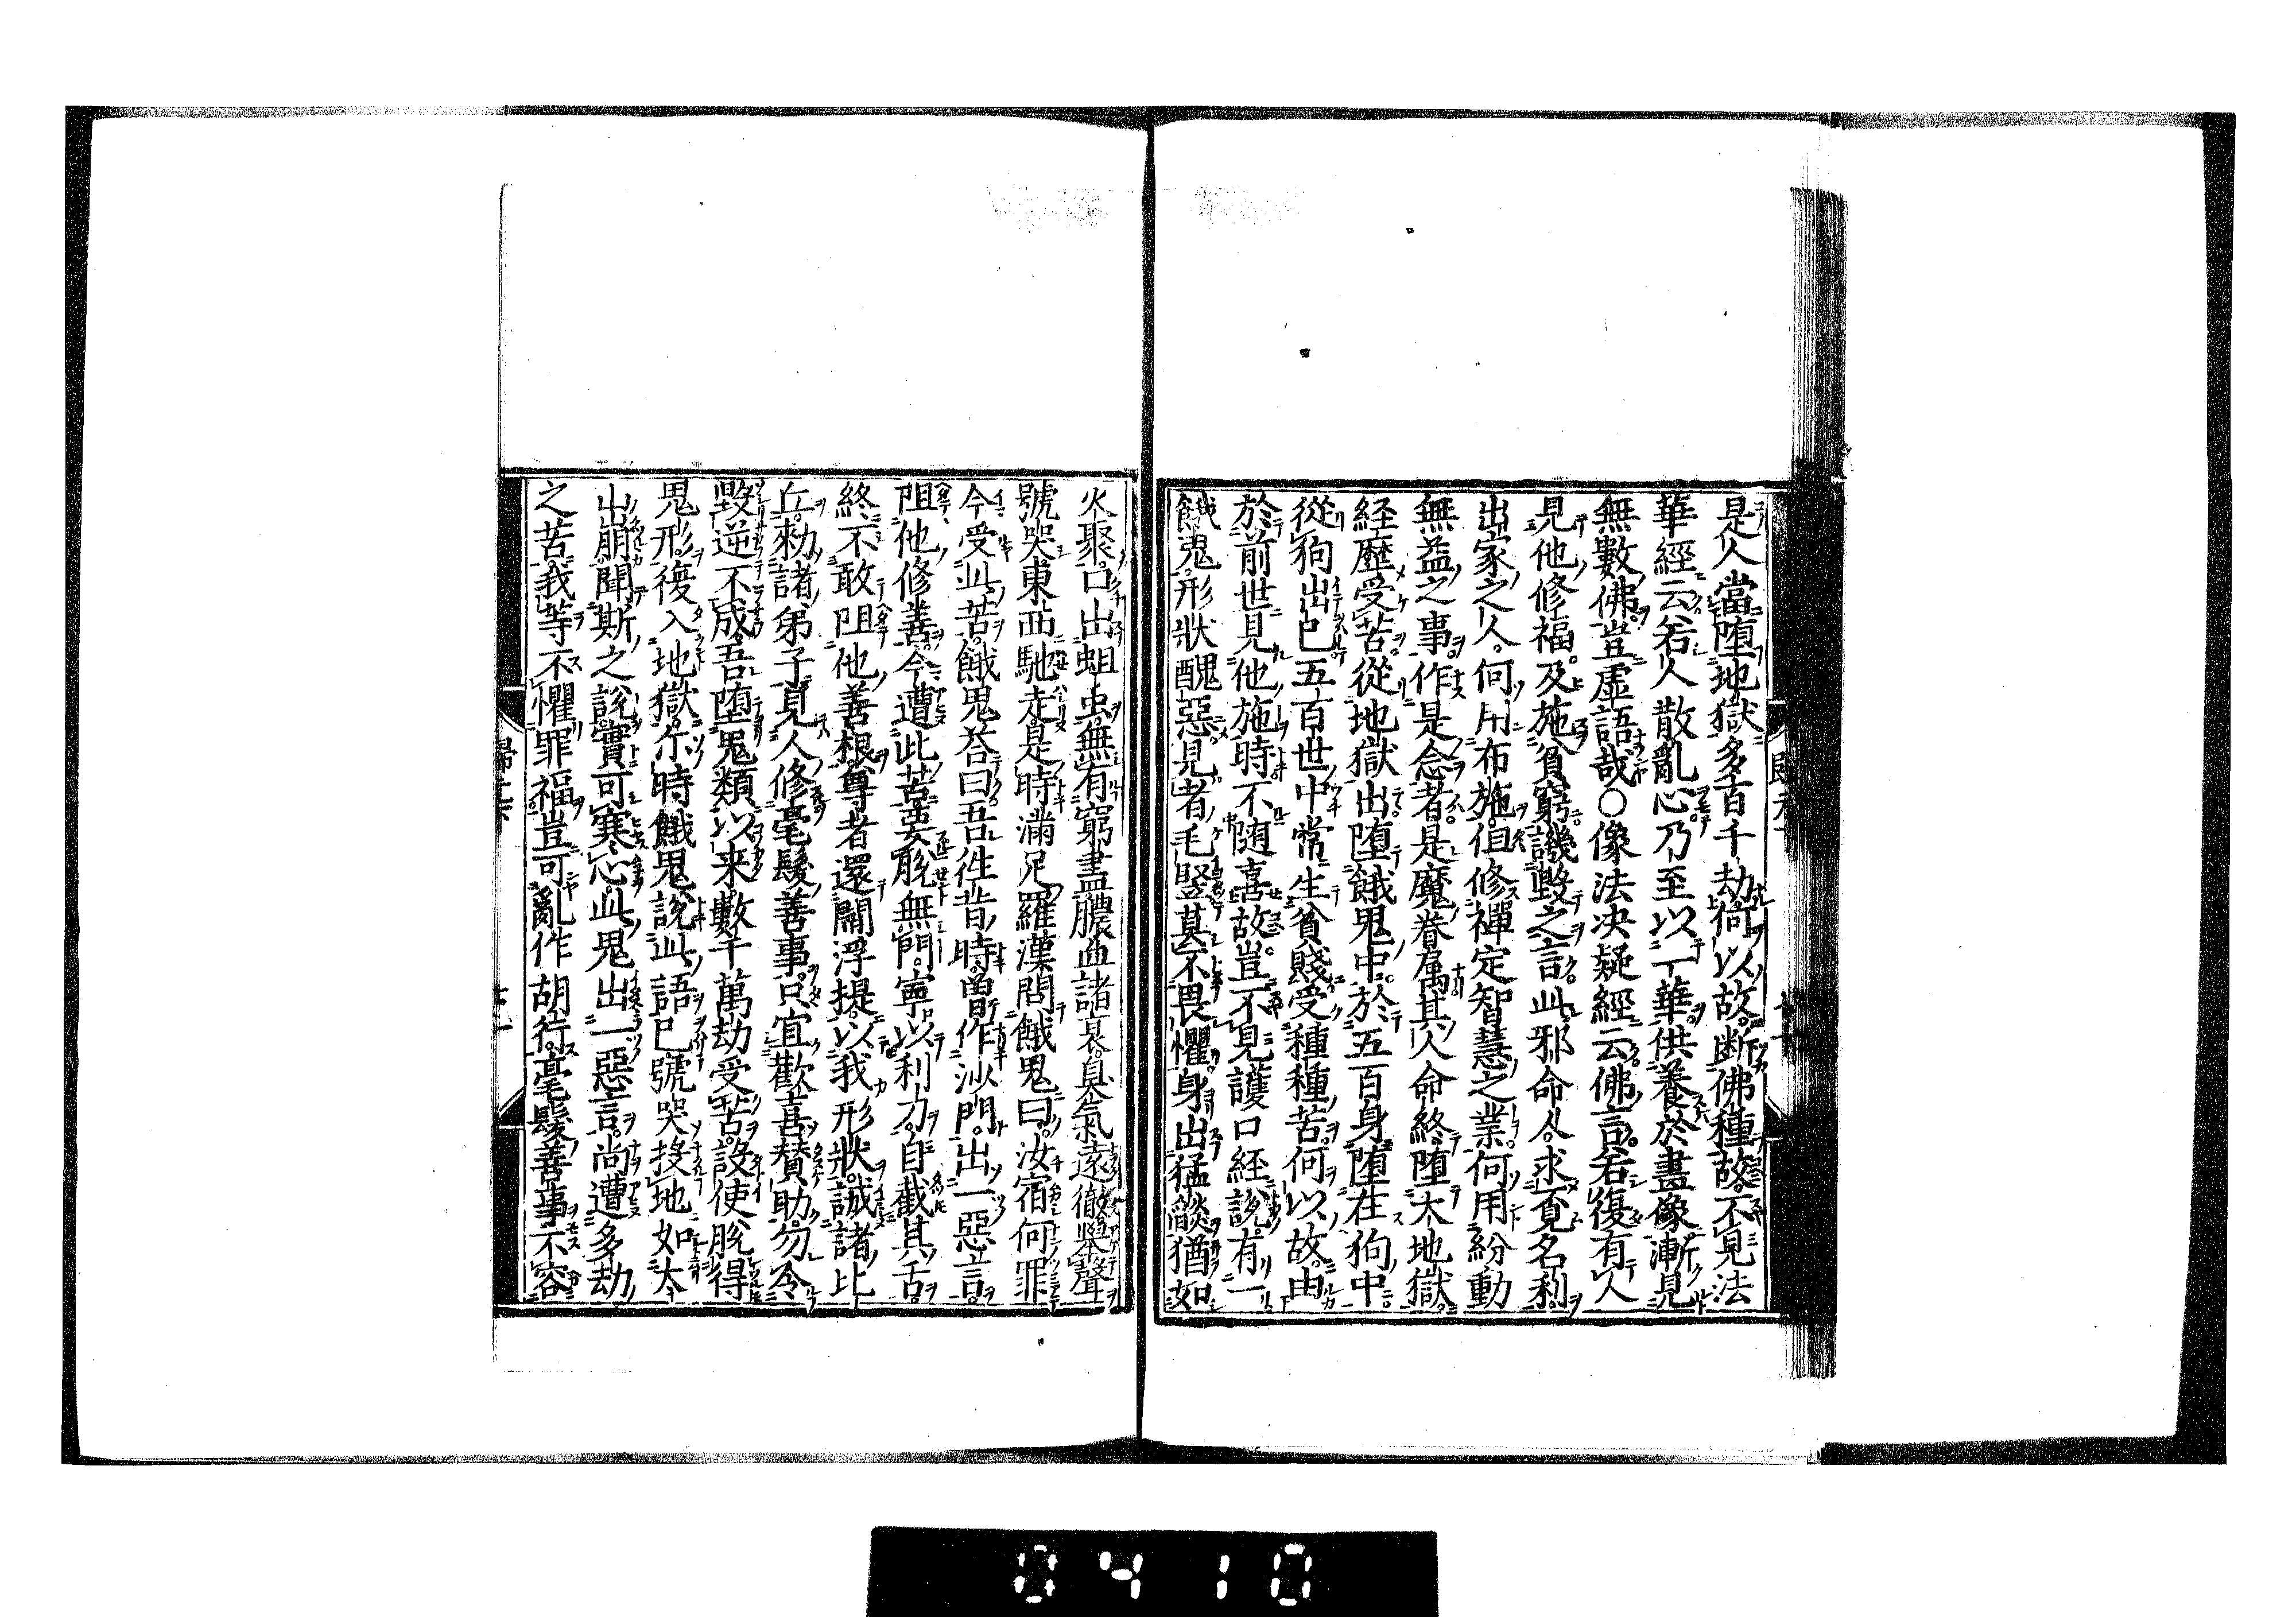 是人當堕地獄多百千劫何以故断佛種故不見法
華經云若人散亂心乃至以一華供養於畫像漸見
無數佛豈虚語哉○像法决疑經云佛言若復有人
見他修福及施貧窮譏毀之言此邪命人求覓名利
出家之人何用布施但修禪定智慧之業何用紛動
無益之事作是念者是魔眷属其人命終堕大地獄
経歴受苦從地獄出堕餓鬼中於五百身堕在狗中
從狗出已五百世中常生貧賤受種種苦何以故由
於前世見他施時不随喜故豈不見護口経説有一
餓鬼形状醜惡見者毛竪莫不畏懼身出猛燄猶如
火聚口出蛆虫無有窮盡膿血諸衰臭氣遠徹擧聲
號哭東西馳走是時滿足羅漢問餓鬼曰汝宿何罪
今受此苦餓鬼答曰吾徃昔時曽作沙門出一惡言
阻他修善今遭此苦要脱無門寧以利刀自截其舌
終不敢阻他善根尊者還閻浮提以我形状誡諸比
丘勑諸弟子見人修毫髮善事只宜歡喜賛助勿令
毀逆不成吾堕鬼類以来數千萬劫受苦設使脱得
鬼形復入地獄尓時餓鬼説此語已號哭投地如大
出崩聞斯之説實可寒心此鬼出一惡言尚遭多劫
之苦我等不懼罪福豈可亂作胡行毫髮善事不容
0410